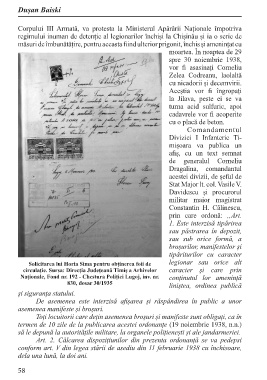 Dușan Baiski
Corpului III Armată, va protesta la Ministerul Apărării Naționale împotriva
regimului inuman de detenție al legionarilor închiși la Chișinău și ia o serie de
măsuri de îmbunătățire, pentru aceasta fiind ulterior prigonit, închis și amenințat cu
moartea. În noaptea de 29
spre 30 noiembrie 1938,
vor fi asasinați Corneliu
Zelea Codreanu, laolaltă
cu nicadorii și decemvirii.
Aceștia vor fi îngropați
la Jilava, peste ei se va
turna acid sulfuric, apoi
cadavrele vor fi acoperite
cu o placă de beton.
Comandamentul
Diviziei I Infanterie Ti-
mișoara va publica un
afiș, cu un text semnat
de generalul Corneliu
Dragalina, comandantul
acestei divizii, de șeful de
Stat Major lt. col. Vasile V.
Davidescu și procurorul
militar maior magistrat
Constantin H. Călinescu,
prin care ordonă: „Art.
1. Este interzisă tipărirea
sau păstrarea în depozit,
sau sub orice formă, a
broșurilor, manifestelor și
tipăriturilor cu caracter
legionar sau orice alt
caracter și care prin
conținutul lor amenință
liniștea, ordinea publică
Solicitarea lui Horia Sima pentru obținerea foii de
circulație. Sursa: Direcția Județeană Timiș a Arhivelor
Naționale, Fond nr. 192 - Chestura Poliției Lugoj, inv. nr.
830, dosar 30/1935
și siguranța statului.
De asemenea este interzisă afișarea și răspândirea în public a unor
asemenea manifeste și broșuri.
Toți locuitorii care dețin asemenea broșuri și manifeste sunt obligați, ca în
termen de 10 zile de la publicarea acestei ordonanțe (19 noiembrie 1938, n.n.)
să le depună la autoritățile militare, la organele polițienești și ale jandarmeriei.
Art. 2. Călcarea dispozițiunilor din prezenta ordonanță se va pedepsi
conform art. V din legea stării de asediu din 11 februarie 1938 cu închisoare,
dela una lună, la doi ani.
58